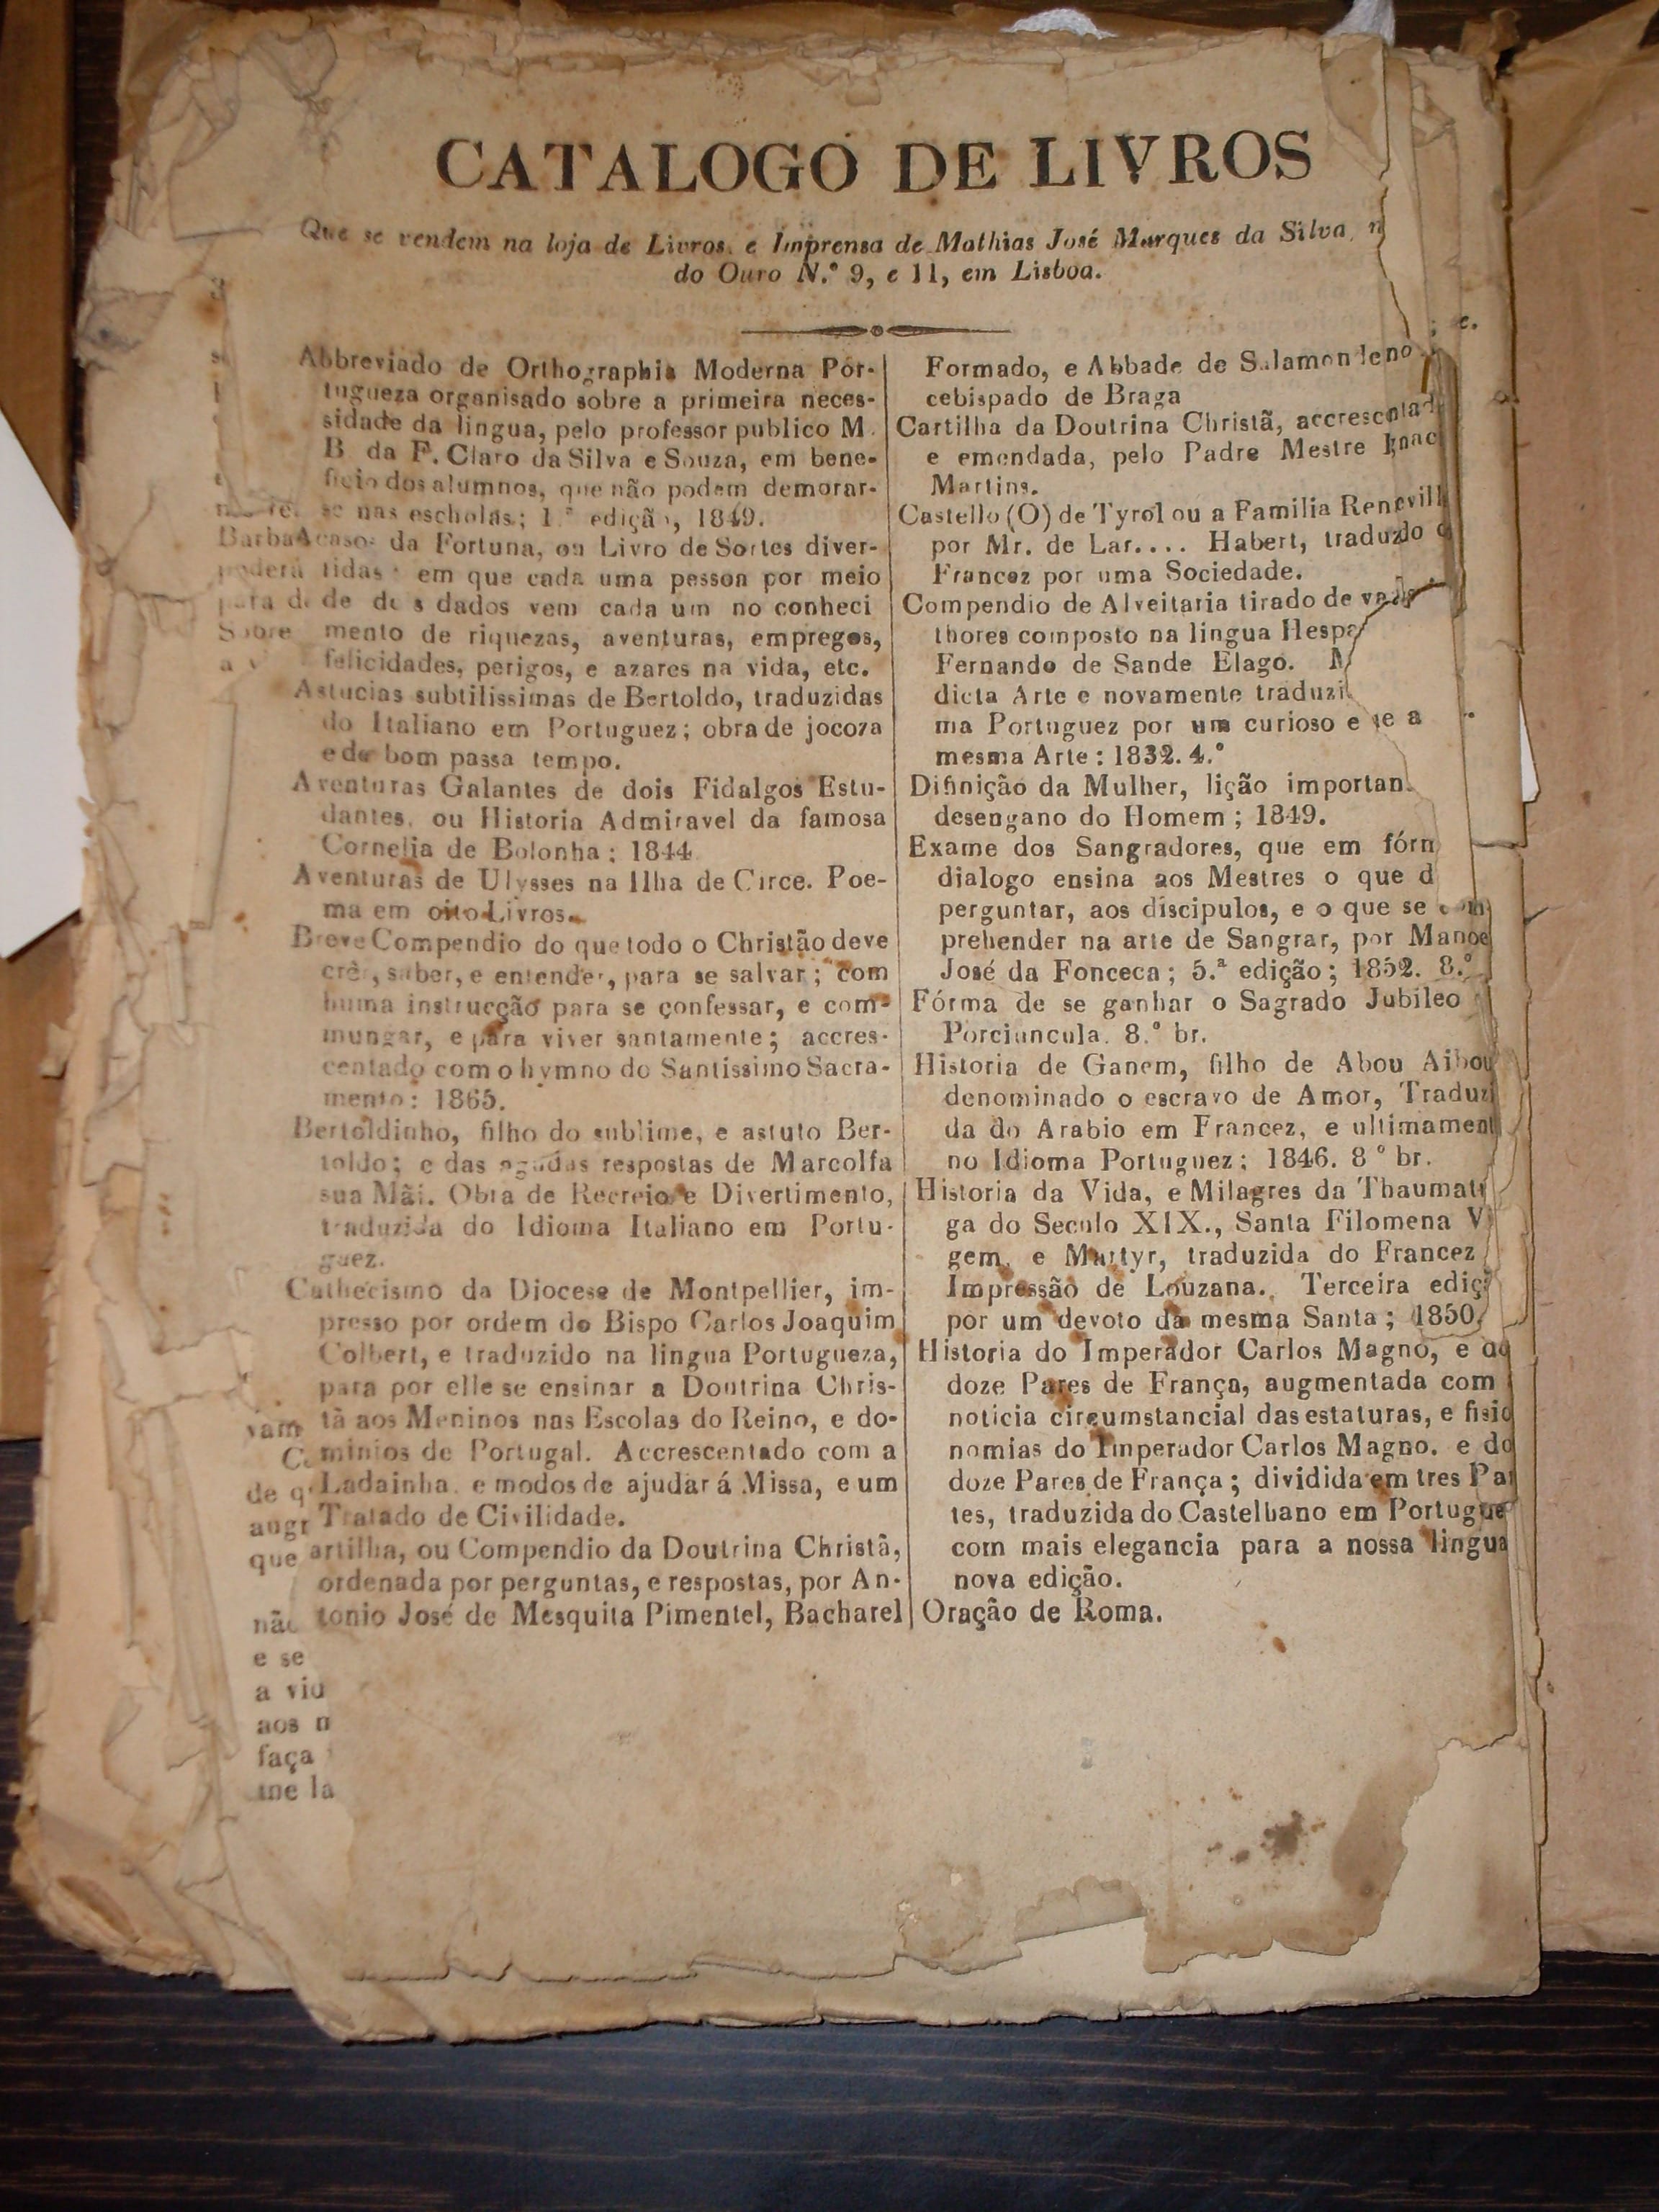 CATALOGO DE LIVROS
Que se vendem na loja de Livros, e Imprensa de Mathias José Marques da Silva,
do Ouro N.º 9, e 11, em Lisboa.
Abbreviado de Orthographia Moderna Por-
tugueza organisado sobre a primeira neces-
sidade da lingua, pelo professor publico M.
B da F. Claro da Silva e Souza, em bene-
ficio dos alumnos, que não podem demorar-
se nas escholas; 1.ª edição, 1849.
Acasos da Fortuna, ou Livro de Sortes diver-
tidas em que cada uma pessoa por meio
de dados vem cada um no conheci
mento de riquezas, aventuras, empregos,
felicidades, perigos, e azares na vida, etc.
Astucias subtilissimas de Bertoldo, traduzidas
do Italiano em Portuguez; obra de jocoza
e de bom passa tempo.
Aventuras Galantes de dois Fidalgos Estu-
dantes, ou Historia Admiravel da famosa
Cornelia de Bolonha; 1844
Aventuras de Ulysses na Ilha de Circe. Poe-
ma em oito Livros.
Breve Compendio do que todo o Christão deve
crêr, saber, e entender, para se salvar; com
huma instrucção para se confessar, e com-
mungar, e para viver santamente; accres-
centado com o hymno do Santissimo Sacra-
mento: 1865.
Bertoldinho, filho do sublime, e astuto Ber-
toldo; e das agudas respostas de Marcolfa
sua Mãi. Obra de Recreio e Divertimento,
traduzida do Idioma Italiano em Portu-
guez.
Cathecismo da Diocese de Montpellier, im-
presso por ordem do Bispo Carlos Joaquim
Colbert, e traduzido na lingua Portugueza,
para por elle se ensinar a Doutrina Chris-
tã aos Meninos nas Escolas do Reino, e do-
minios de Portugal. Accrescentado com a
Ladainha, e modos de ajudar á Missa, e um
Tratado de Civilidade.
artilha, ou Compendio da Doutrina Christã,
ordenada por perguntas, e respostas, por An-
tonio José de Mesquita Pimentel, Bacharel
Formado, e Abbade de Salamonde no
cebispado de Braga
Cartilha da Doutrina Christã, accrescentad
e emendada, pelo Padre Mestre Ignac
Martins.
Castello (O) de Tyrol ou a Familia Renevill
por Mr. de Lar.... Habert, traduzdo
Francez por uma Sociedade.
Compendio de Alveitaria tirado de
thores composto na lingua Hespa
Fernando de Sande Elago.
dicta Arte e novamente traduzi
ma Portuguez por um curioso e
mesma Arte: 1832. 4.º
Difinição da Mulher, lição importan
desengano do Homem; 1849.
Exame dos Sangradores, que em fórm
dialogo ensina aos Mestres o que d
perguntar, aos discipulos, e o que se
prehender na arte de Sangrar, por Manoe
José da Fonceca; 5.ª edição; 1852. 8.º
Fórma de se ganhar o Sagrado Jubileo
Porciuncula. 8.º br.
Historia de Ganem, filho de Abou Aibou
denominado o escravo de Amor, Traduzi
da do Arabio em Francez, e ultimament
no Idioma Portuguez; 1846. 8º br.
Historia da Vida, e Milagres da Thaumatu
ga do Seculo XIX., Santa Filomena V
gem, e Martyr, traduzida do Francez
Impressão de Louzana. Terceira ediç
por um devoto da mesma Santa; 1850,
Historia do Imperador Carlos Magno, e do
doze Pares de França, augmentada com
noticia circumstancial das estaturas, e fisio
nomias do Imperador Carlos Magno. e do
doze Pares de França; dividida em tres Par
tes, traduzida do Castelhano em Portugue
com mais elegancia para a nossa lingua
nova edição.
Oração de Roma.
vam
de q
augr
que
não
e se
a vid
aos n
faça
me la